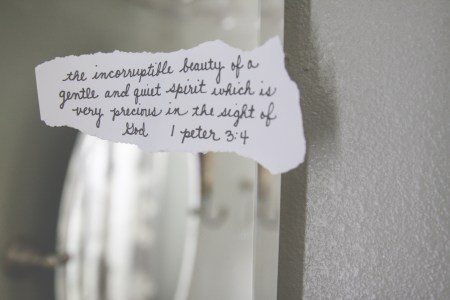 the incorruptible beauty of a
gentle and quiet spirit which is
very precious in the sight of
God 1 peter 3:4